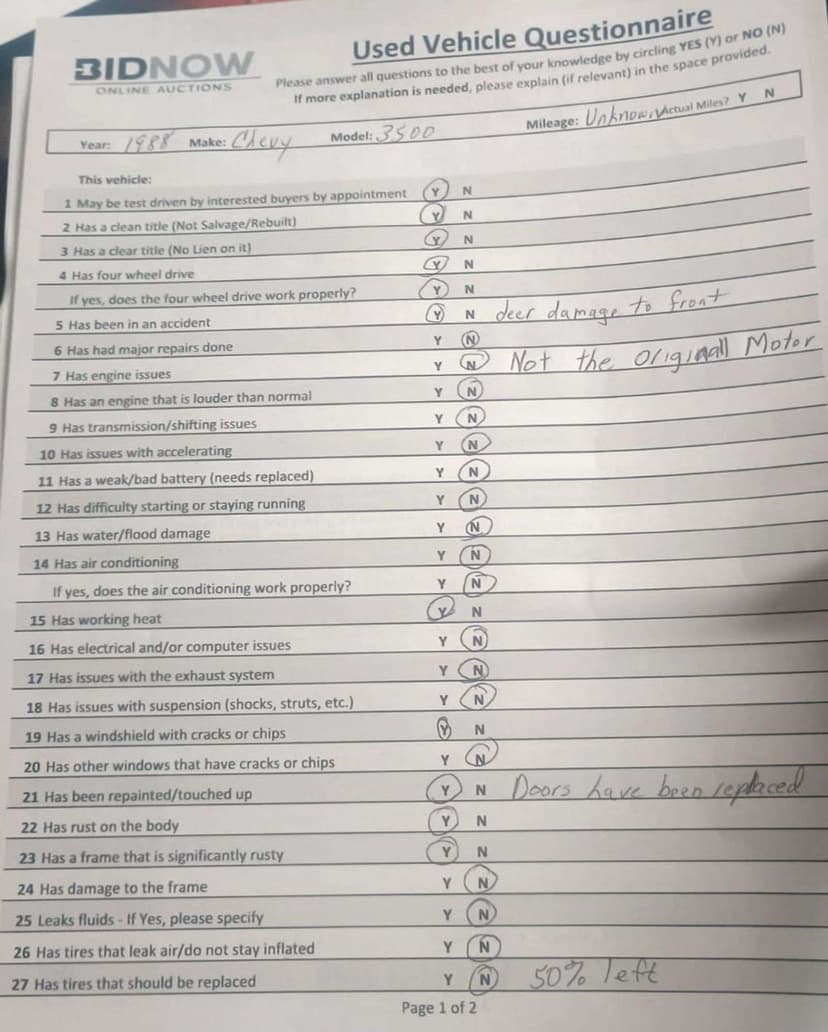 BIDNOW
ONLINE AUCTIONS
Used Vehicle Questionnaire
Please answer all questions to the best of your knowledge by circling YES (Y) or NO (N)
If more explanation is needed, please explain (if relevant) in the space provided.
Year: 1988 Make: Chevy Model: 3500 Mileage: Unknown Actual Miles? Y N
This vehicle:
1 May be test driven by interested buyers by appointment Y N
2 Has a clean title (Not Salvage/Rebuilt) Y N
3 Has a clear title (No Lien on it) Y N
4 Has four wheel drive Y N
If yes, does the four wheel drive work properly? Y N
5 Has been in an accident Y N deer damage to front
6 Has had major repairs done Y N
7 Has engine issues Y N Not the Origiaall Motor
8 Has an engine that is louder than normal Y N
9 Has transmission/shifting issues Y N
10 Has issues with accelerating Y N
11 Has a weak/bad battery (needs replaced) Y N
12 Has difficulty starting or staying running Y N
13 Has water/flood damage Y N
14 Has air conditioning Y N
If yes, does the air conditioning work properly? Y N
15 Has working heat Y N
16 Has electrical and/or computer issues Y N
17 Has issues with the exhaust system Y N
18 Has issues with suspension (shocks, struts, etc.) Y N
19 Has a windshield with cracks or chips Y N
20 Has other windows that have cracks or chips Y N
21 Has been repainted/touched up Y N Doors have been replaced
22 Has rust on the body Y N
23 Has a frame that is significantly rusty Y N
24 Has damage to the frame Y N
25 Leaks fluids - If Yes, please specify Y N
26 Has tires that leak air/do not stay inflated Y N
27 Has tires that should be replaced Y N 50% left
Page 1 of 2